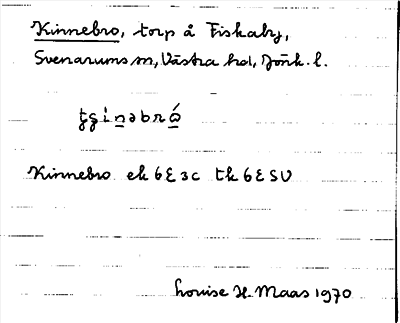 Kinnebro, torp å Fiskaby,
Svenarums sn, Västra hd, Jönk. l.
Kinnebro ek 6E 3c tk 6E SV
Louise H. Maas 1970